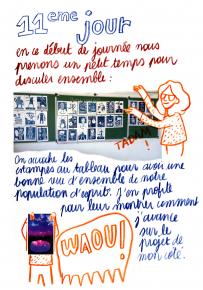 11eme jour
en ce début de journée nous
prenons un petit temps pour
discuter ensemble :
TADAM !
On accroche les
estampes au tableau pour avoir une
bonne vue d'ensemble de notre
population d'esprit. J'en profite
pour leur montrer comment
j'avance
sur le
projet de
mon côté.
WAOU !